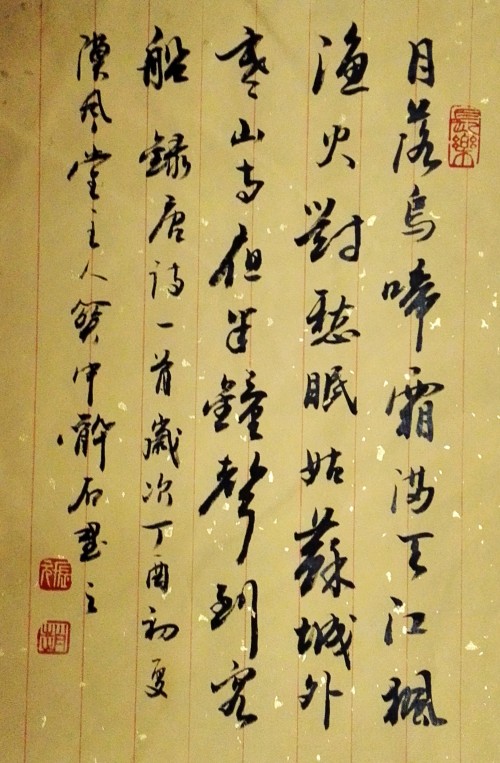 月落烏啼霜満天江楓
漁火對愁眠姑蘇城外
寒山寺夜半鐘聲到客
船 録唐詩一首歲次丁酉初夏
漢風堂主人癸中醉石書之
長樂